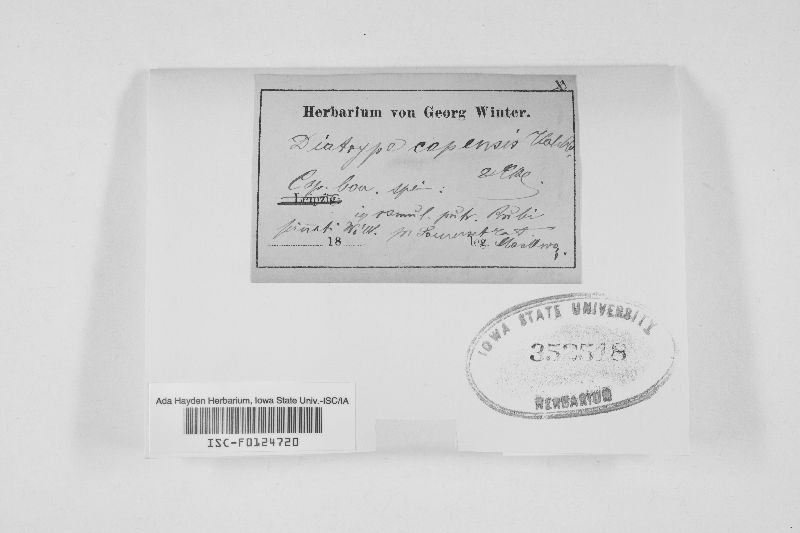 Herbarium von Georg Winter.
Diatrype capensis Kalchbr.
& Cke.
Cap. bon. spei:
Leipzig.
ig ramul. putr. Rubi
pinnati Willd. pr Somerset East
18 leg. MacOwan.
IOWA STATE UNIVERSITY
352518
HERBARIUM
Ada Hayden Herbarium, Iowa State Univ.-ISC/IA
ISC-F0124720